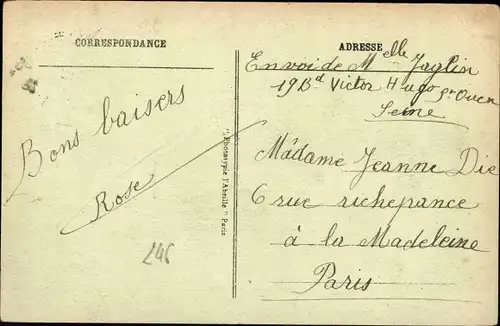 CORRESPONDANCE
Bons baisers
Rose
245
" Phototypie l'Abeille " Paris
ADRESSE
Envoi de Melle Jaglin
19 Bd Victor Hugo St Ouen
Seine
Madame Jeanne Die
6 rue richepance
à la Madeleine
Paris